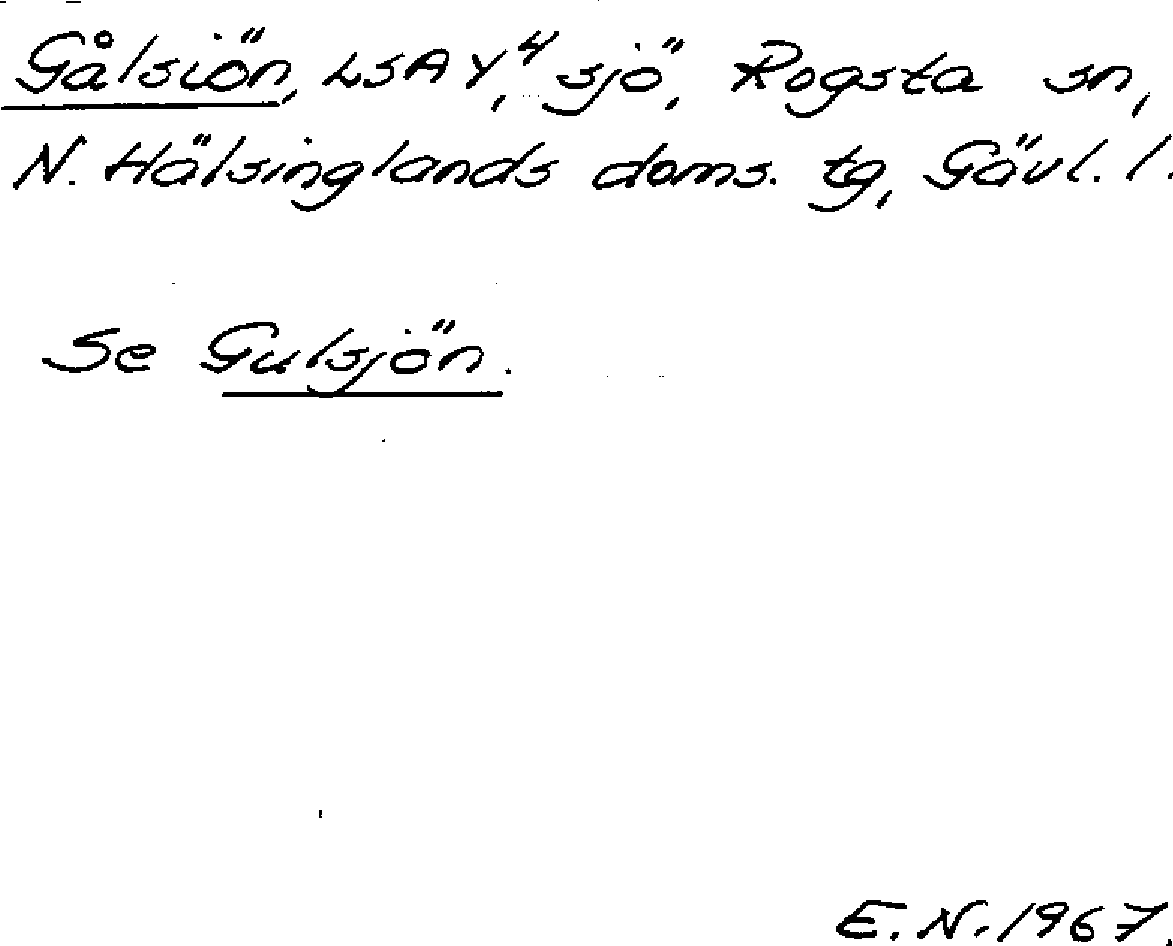 Gålsiön, LSA Y⁴, sjö, Rogsta sn,
N. Hälsinglands doms. tg, Gävl. l.
Se Gulsjön.
E.N. 1967.